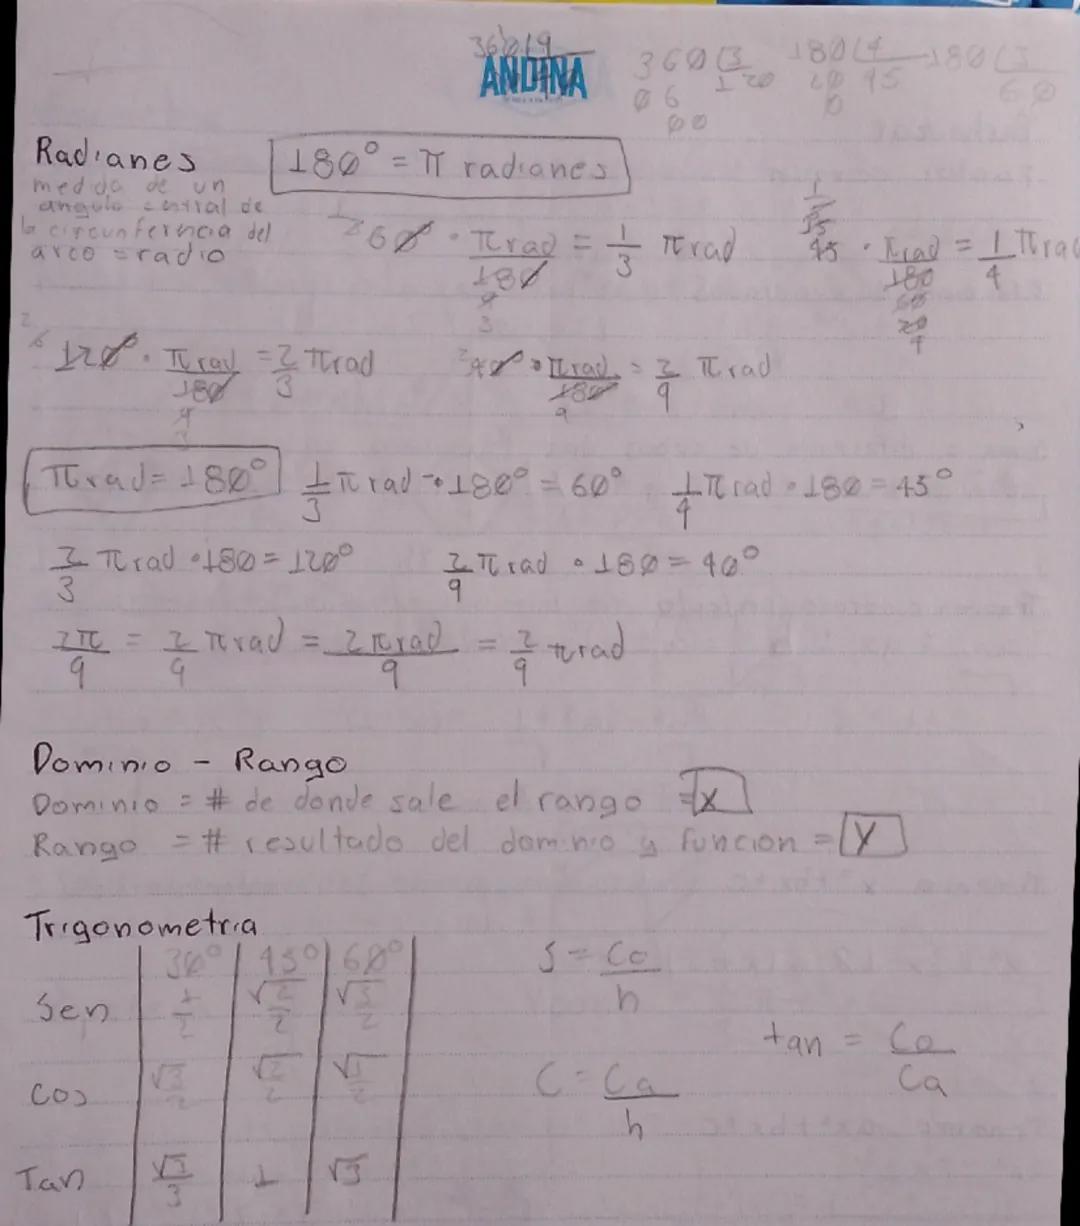 360 9
ANDINA
360 3 180 4 180 3
06 120 20 45 60
00 0
Radianes 180° = π radianes
medida de un
angulo central de
la circunferencia del
arco = radio
60 · π rad/180 = 1/3 π rad 45 · π rad/180 = 1/4 π rad
120 · π rad/180 = 2/3 π rad 40 · π rad/180 = 2/9 π rad
π rad = 180° 1/3 π rad · 180° = 60° 1/4 π rad · 180 = 45°
2/3 π rad · 180 = 120° 2/9 π rad · 180 = 40°
2π/9 = 2/9 π rad = 2 π rad/9 = 2/9 π rad
Dominio - Rango
Dominio = # de donde sale el rango = x
Rango = # resultado del dominio y funcion = y
Trigonometria
30° 45° 60°
Sen 1/2 √2/2 √3/2
S = Co/h
tan = Co/Ca
Cos √3/2 √2/2 √1/2
C = Ca/h
Tan √3/3 1 √3